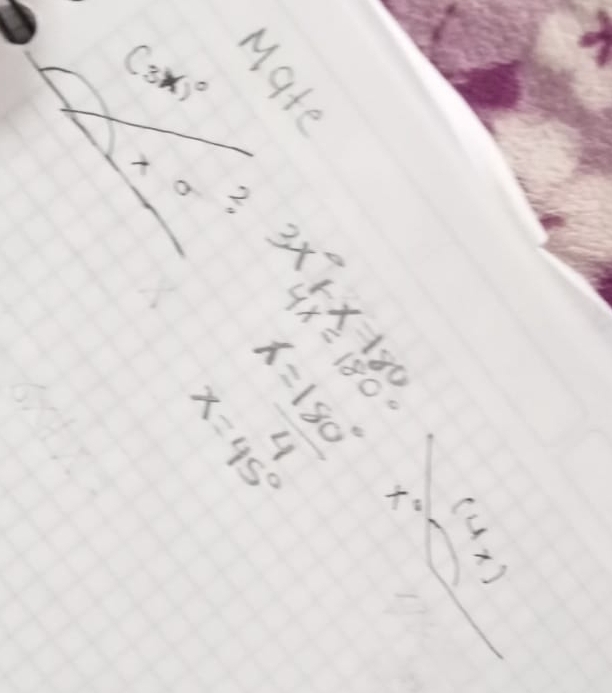 Mate
(3x)°
x ° ?
3x° + x = 180
4x = 180°
x = 180°
4
x = 45°
x°
(4x)